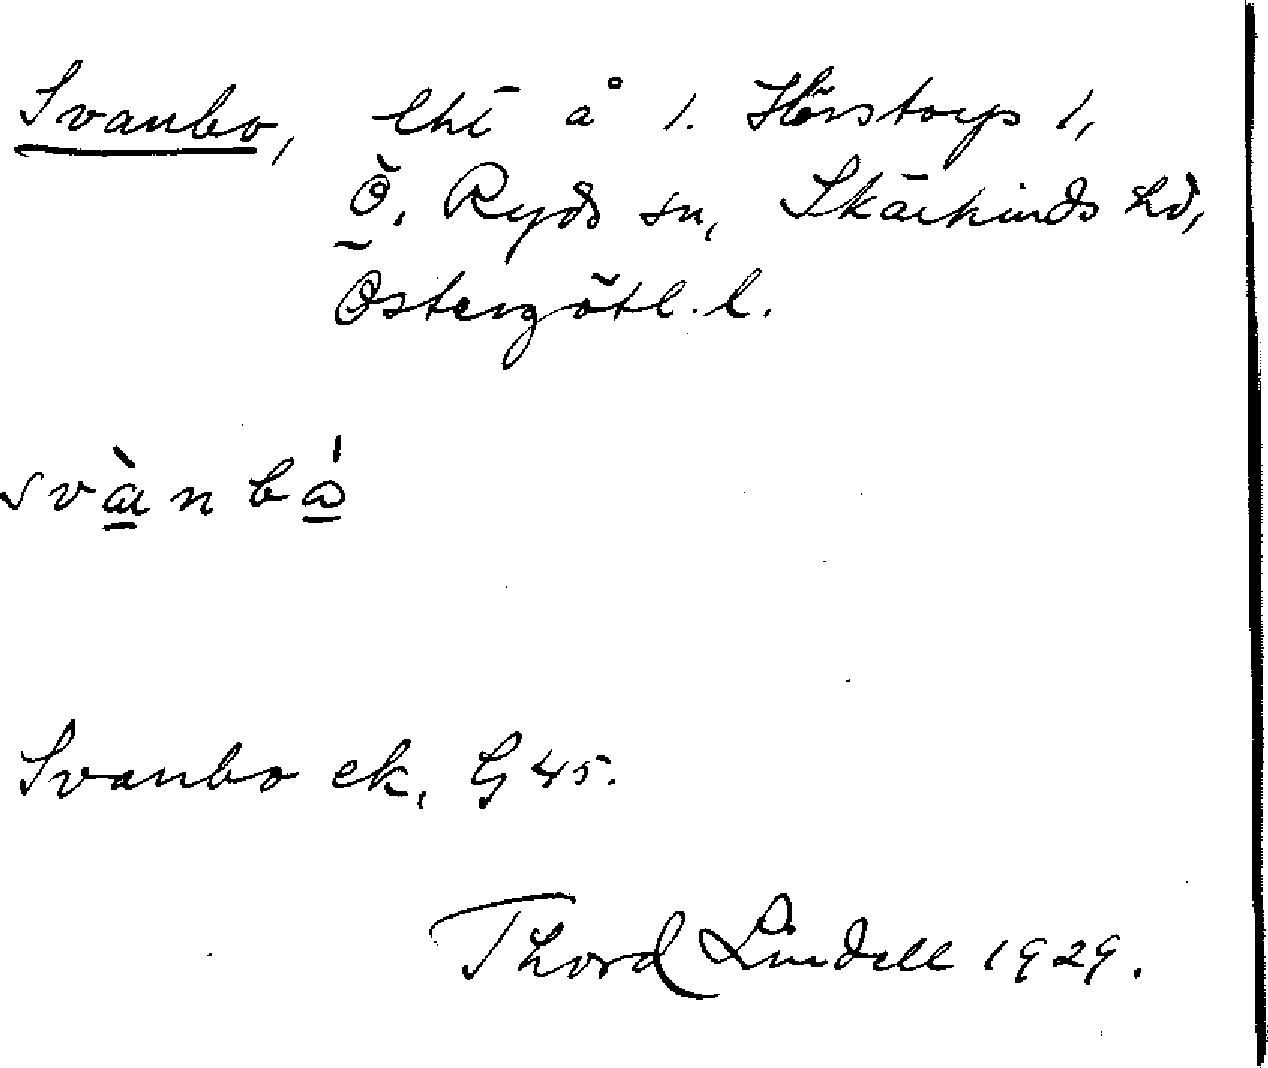 Svanbo, lht å 1. Hörstorp 1,
Ö. Ryds sn, Skärkinds hd,
Östergötl. l.
svànbǻ
Svanbo ek. G 45.
Thord Lindell 1929.